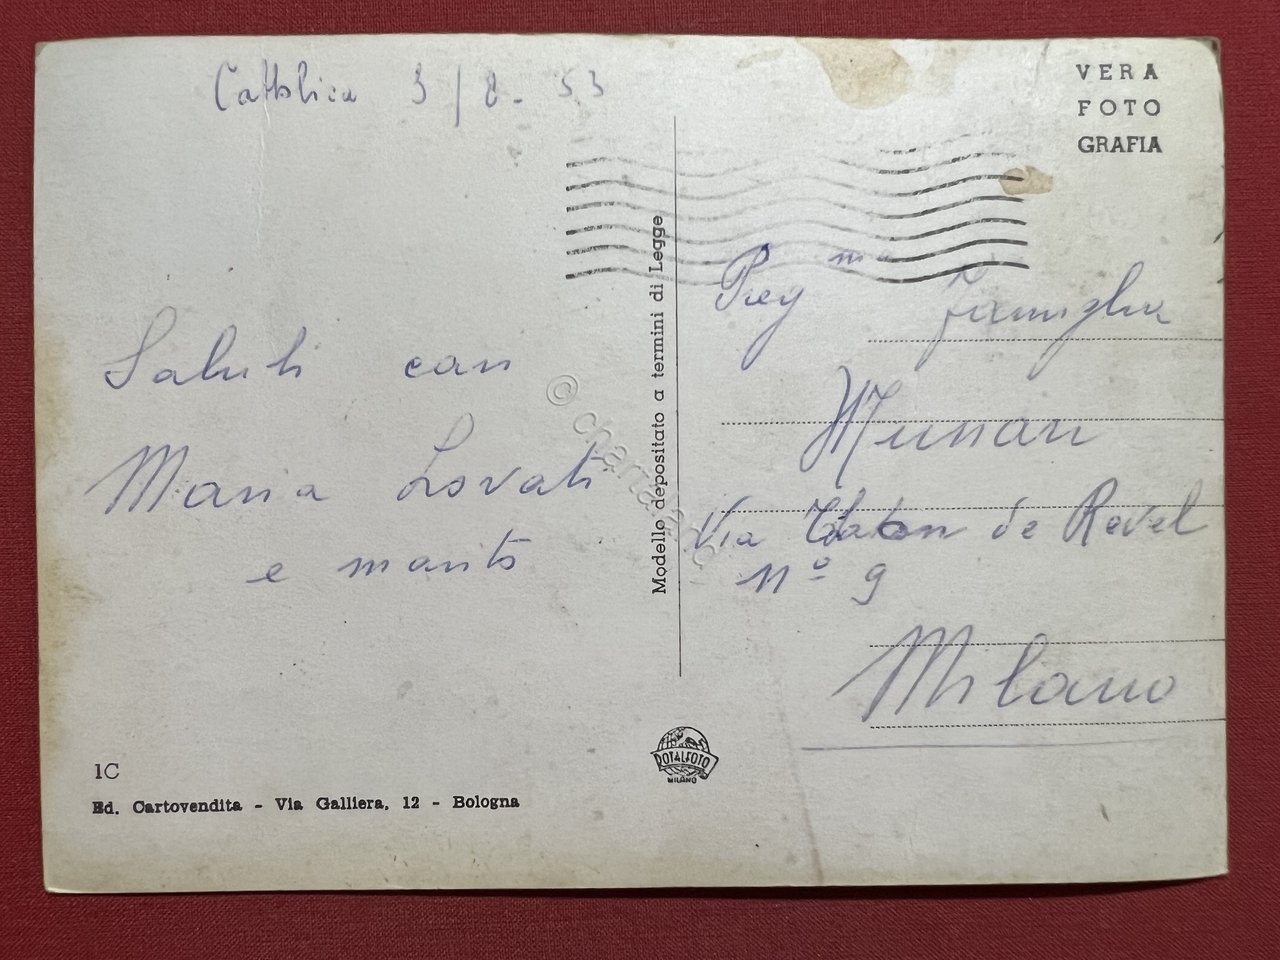 Cattolica 3/8-53
VERA
FOTO
GRAFIA
Saluti cari
Maria Lovati
e marito
Modello depositato a termini di Legge
Preg ma Famiglia
Via de Revel
N° 9
Milano
ROTALFOTO
MILANO
1C
Ed. Cartovendita - Via Galliera, 12 - Bologna